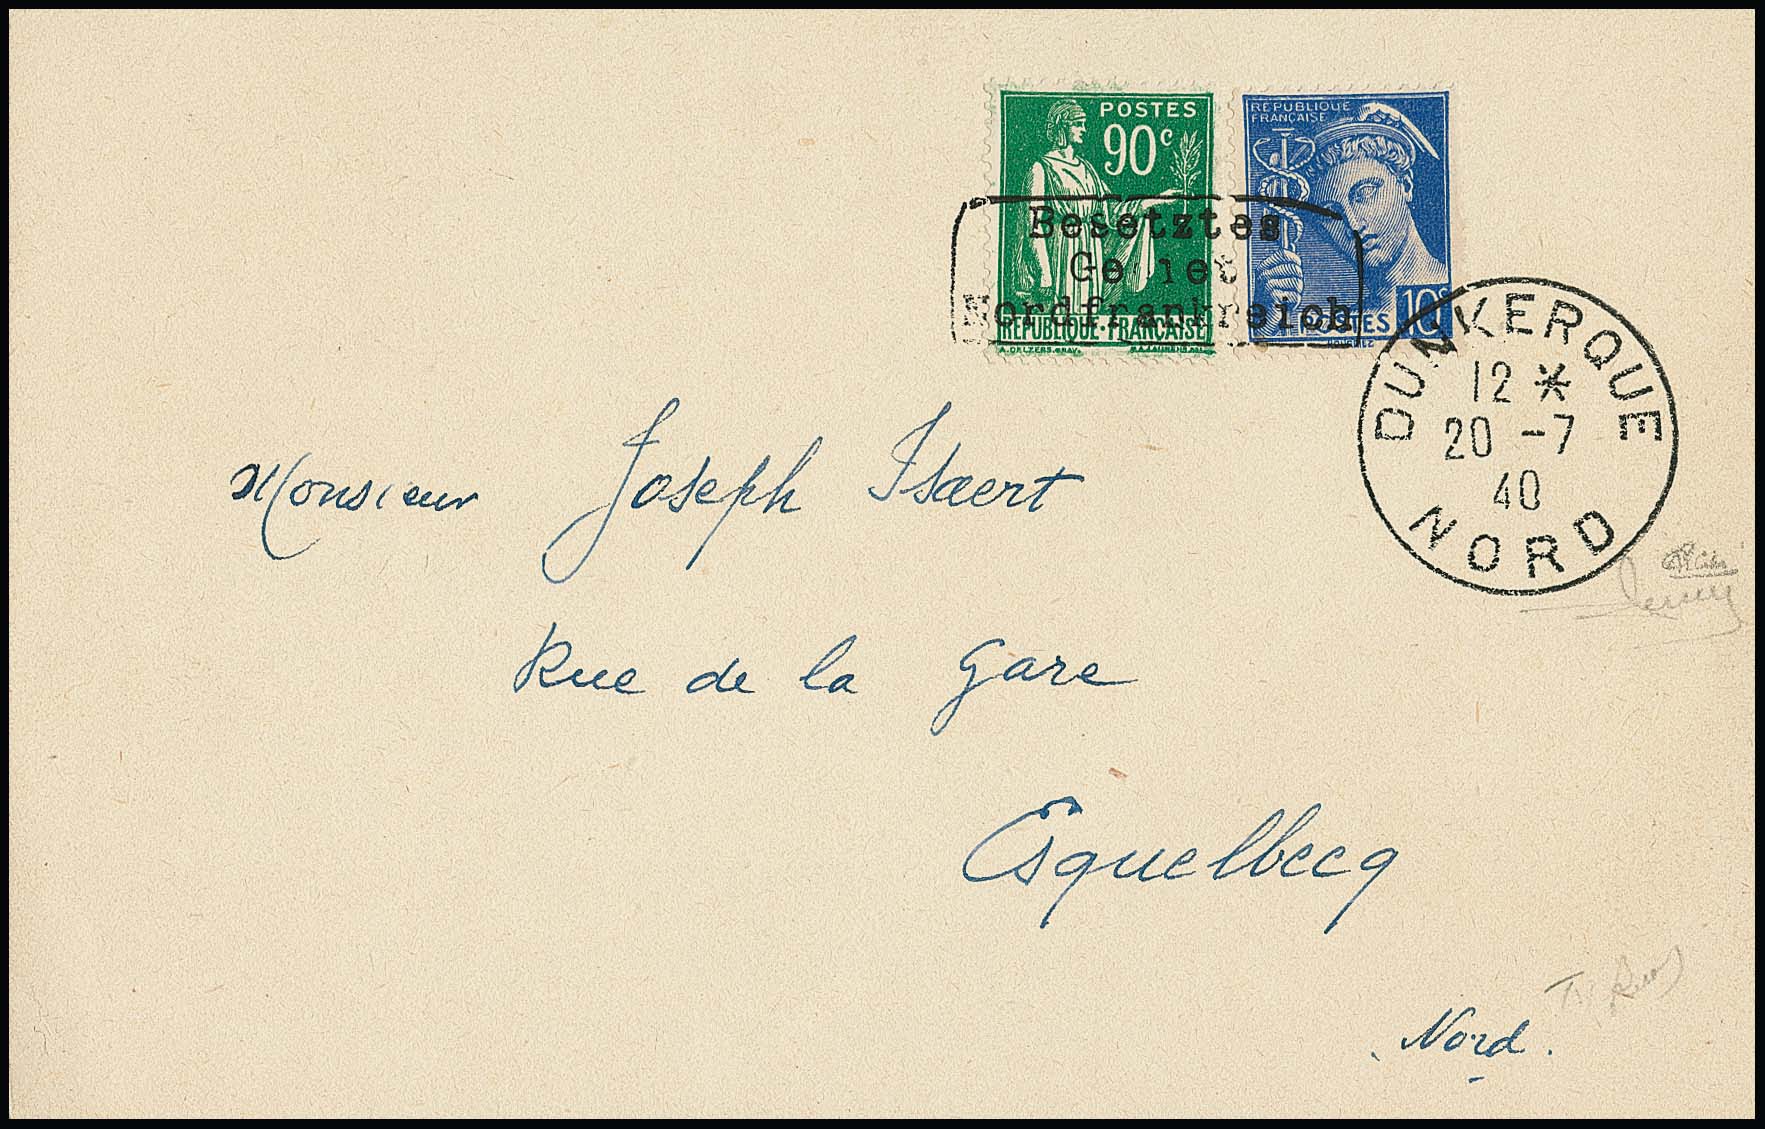 POSTES
90c
RÉPUBLIQUE·FRANÇAISE
RÉPUBLIQUE
FRANÇAISE
POSTES 10c
Besetztes
Gebiet
Nordfrankreich
DUNKERQUE
12 *
20 -7
40
NORD
Monsieur Joseph Isaert
Rue de la Gare
Esquelbecq
Nord.